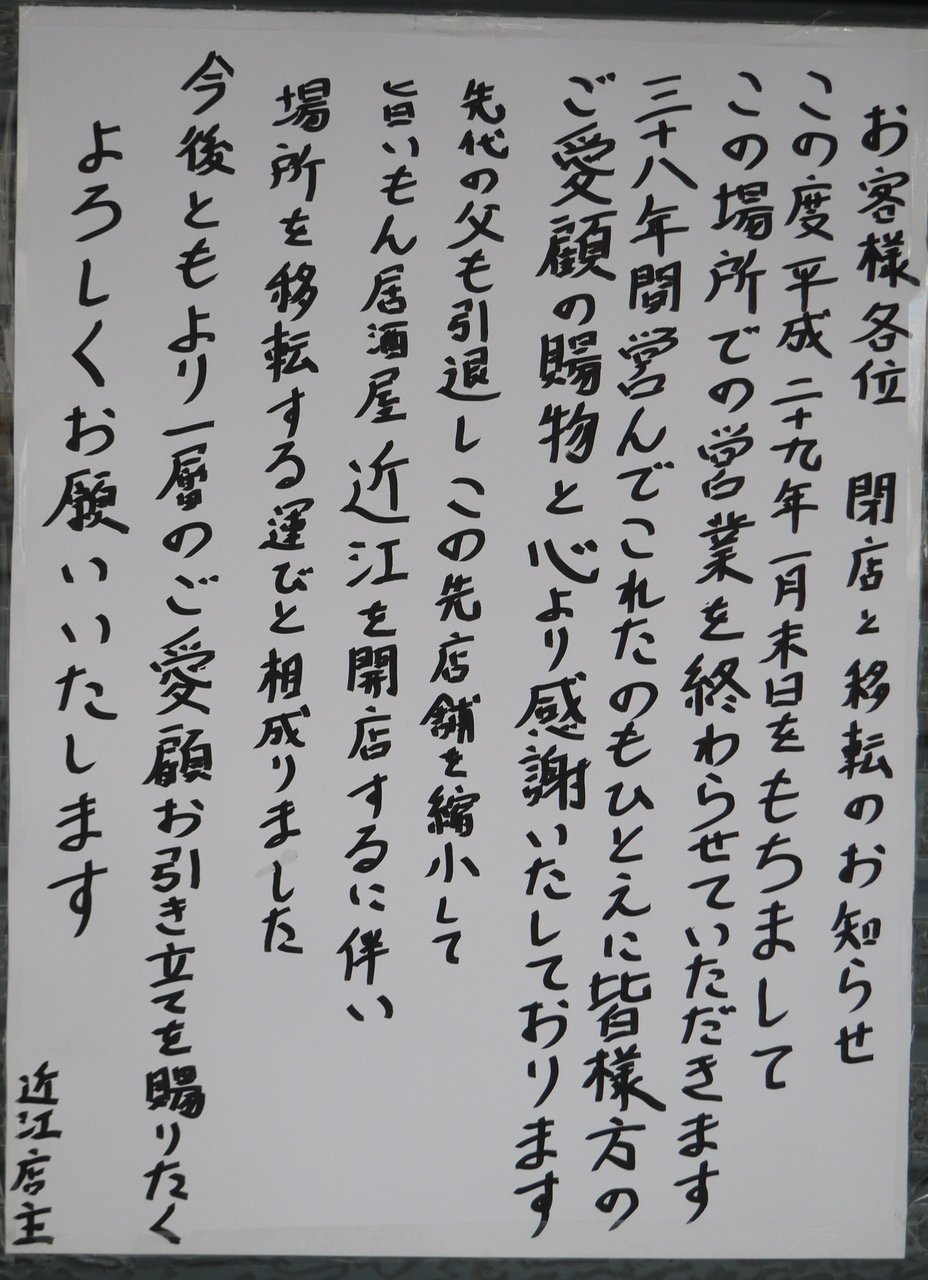 お客様各位 閉店と移転のお知らせ
この度平成二十九年一月末日をもちまして
この場所での営業を終わらせていただきます
三十八年間営んでこれたのもひとえに皆様方の
ご愛顧の賜物と心より感謝いたしております
先代の父も引退しこの先店舗を縮小して
旨いもん居酒屋近江を開店するに伴い
場所を移転する運びと相成りました
今後ともより一層のご愛顧お引き立てを賜りたく
よろしくお願いいたします
近江店主